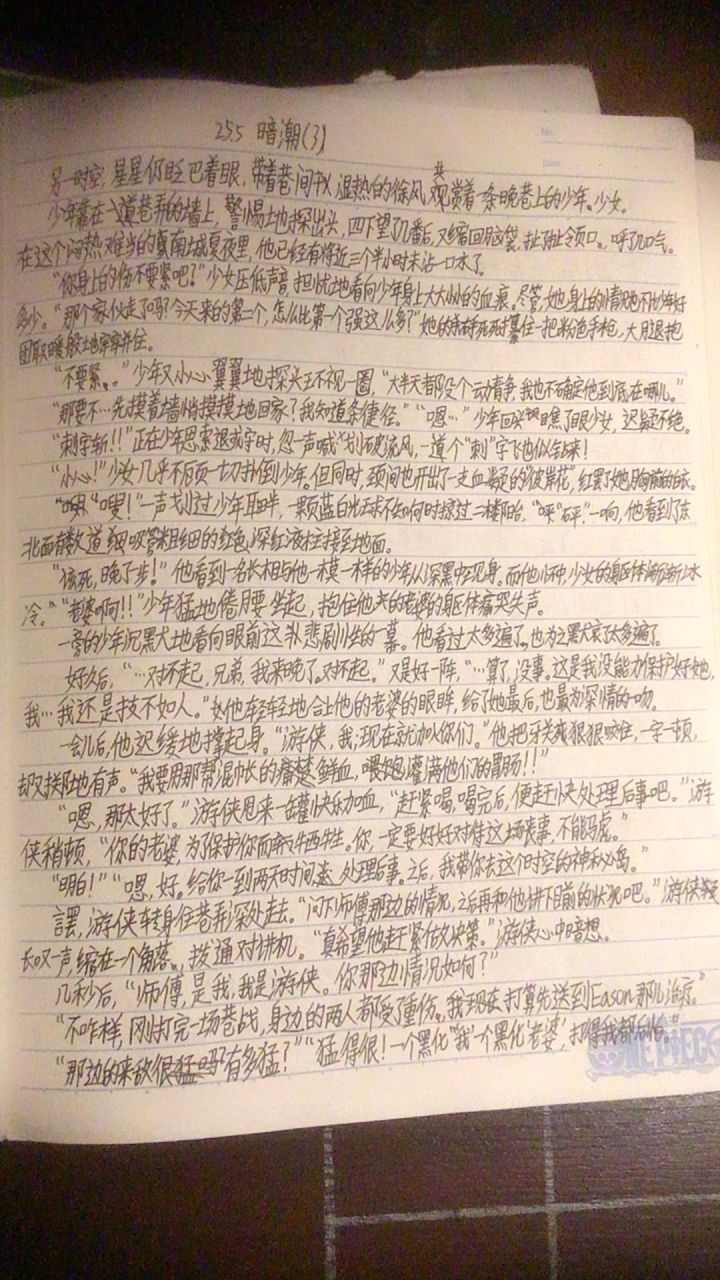 255 暗潮(3)
另一时空,星星们眨巴着眼,带着巷间 温热的徐风,共观赏着一条晚巷上的少年。少女。
少年靠在一道巷弄的墙上,警惕土地探出头,四下望了几番后,又缩回脑袋,扯了扯令页口。,呼了几口气。
在这个闷热难当的 南城夏夜里,他已经有将近三个半小时未沾一口水了。
“你身上的伤不要紧吧?”少女压低声音,担忧地看向少年身上大大小小的血痕。尽管,她身上的情况也不比少年好
多少。“那个家伙走了吗?今天来的第二个,怎么比第一个强这么多?”她的右手死死攥住一把粉色手枪,大腿抱
团取暖般土地牢牢并住。
“不要紧。。”少年又小心翼翼地探头环视一圈,“大半天都没个动静,我也不确定他到底在哪儿。”
“那要不…先摸着墙悄摸摸地回家?我知道条便径。”“嗯…”少年回头瞧了眼少女,迟疑不绝。
“刺字斩!!”正在少年思索退或守时,忽一声喊“划破流风,一道个“刺”字飞也似 来!
“小心!”少女几乎不顾一切扑倒少年。但同时,颈间也开出了一支血凝的“彼岸花”,红罢了她胸前的白衣。
“嗖!”一声划过少年耳畔,一颗蓝白光球不知何时掠过一楼阳台,“呯”“砰”一响,他看到了东
北面有数道细吸管粗细的红色,深红液柱接至地面。
“该死,晚了步!”他看到一名长相与他一模一样的少年从深黑中现身。而他怀中,少女的身躯体渐渐 冰
冷。“老婆啊!!”少年猛地倦腰坐起,抱住他 的老婆的身躯体痛哭失声。
一旁的少年沉默犬地看向眼前这 悲剧川坐的一幕。他看过太多遍了。也为之默哀了太多遍了。
好久后,“…对不起,兄弟,我来晚了。对不起。”又是好一阵,“…算了,没事。这是我没能力保护好她,
我…我还是技不如人。”他轻轻地合上他的老婆的眼眸,给了她最后,也最为深情的一吻。
一会儿后,他迟缓地撑起身。“游侠,我,现在就加入你们。”他把牙关 狠狠咬住,一字一顿,
却又掷地有声。“我要用那帮混帐的痛楚鲜血,喂饱灌满他们的胃肠!!”
“嗯,那太好了。”游侠甩来一罐快乐加血,“赶紧喝,喝完后,便赶快处理后事吧。”游
侠稍顿,“你的老婆,为了保护你而牺牲。你,一定要好好对待这场丧事,不能马虎。”
“明白!”“嗯,好。给你一到两天时间 处理后事。之后,我带你去这个时空的神秘岛。”
言罢,游侠转身往巷弄深处走去。“问下师傅那边的情况,之后再和他讲下目前的状况吧。”游侠
长叹一声,缩在一个角落。,拨通对讲机。“真希望他赶紧做决策。”游侠心中暗想。
几秒后,“师傅,是我,我是游侠。你那边情况如何?”
“不咋样,刚打完一场巷战,身边的两人都受了重伤。我现在打算先送到Eason那儿治疗。”
“那边的来敌很猛吗?有多猛?”“猛得很!一个黑化“我”一个黑化‘老婆’,打得我都后怕。”
ONE PIECE